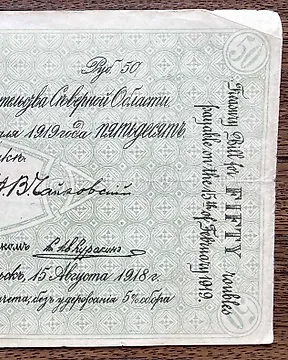 Руб. 50.
50
тельства Сѣверной Области
1919 года пятьдесятъ
Н.В. Чайковскій
Куракинъ
15 Августа 1918 г.
безъ удержанія 5% сбора
Treasury Bill for FIFTY roubles
payable on the 15th of February 1919.
50